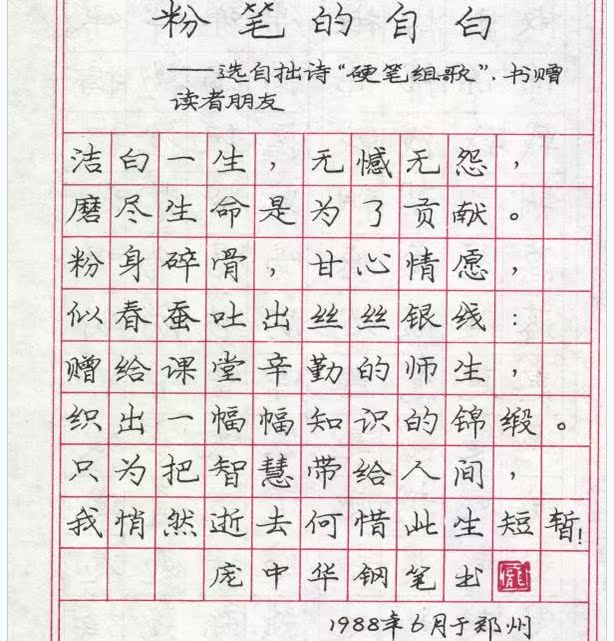 粉笔的自白
——选自拙诗“硬笔组歌”.书赠
读者朋友
洁白一生，无憾无怨，
磨尽生命是为了贡献。
粉身碎骨，甘心情愿，
似春蚕吐出丝丝银线：
赠给课堂辛勤的师生，
织出一幅幅知识的锦缎。
只为把智慧带给人间，
我悄然逝去何惜此生短暂！
庞中华钢笔书
1988年6月于郑州